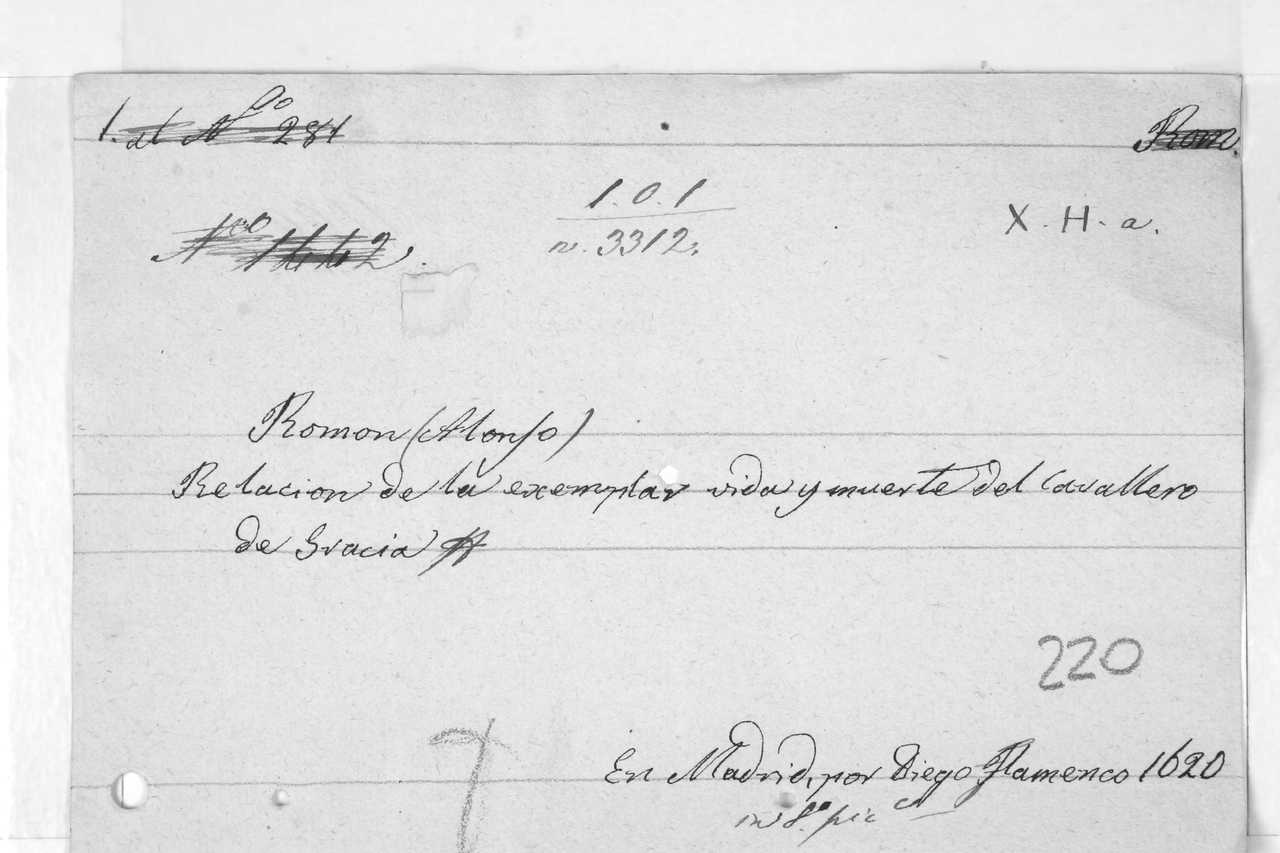 1. al Nº 281
Rom.
Nro 1442.
1.0.1
n. 3312.
X. H. a.
Romon (Alonso)
Relacion de la exemplar vida y muerte del Cavallero
de Gracia
220
En Madrid, por Diego Flamenco 1620
in 8.º picc